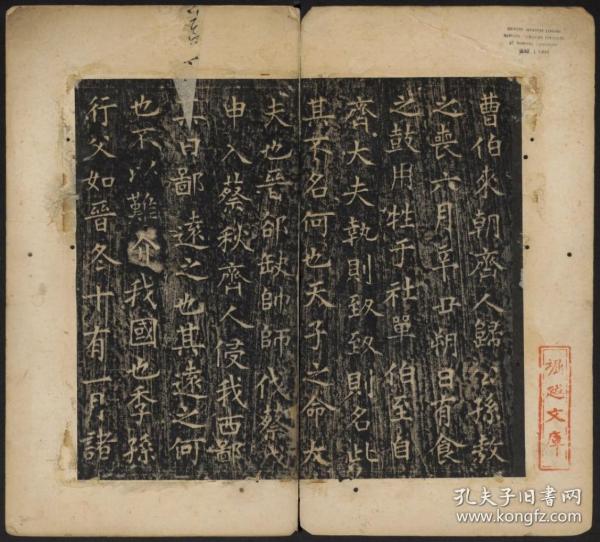 曹伯來朝齊人歸公孫敖
之喪六月辛丑朔日有食
之鼓用牲于社單伯至自
齊大夫執則致致則名此
其不名何也天子之命大
夫也晉郤缺帥師伐蔡戊
申入蔡秋齊人侵我西鄙
其曰鄙遠之也其遠之何
也不以難介我國也季孫
行父如晉冬十有一月諸
文庫
孔夫子旧书网
www.kongfz.com